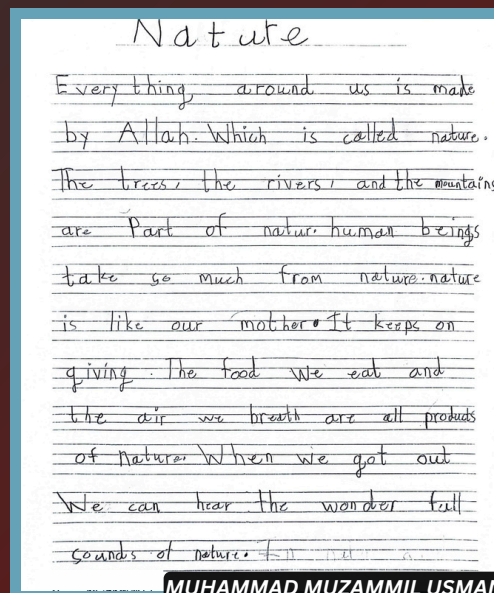 Nature
Every thing, around us is made
by Allah. Which is called nature.
The trees, the rivers, and the mountains
are Part of natur. human beings
take so much from nature. nature
is like our mother. It keeps on
giving. The food We eat and
the air we breath are all products
of nature. When we got out
We can hear the wonder full
sounds of nature.
MUHAMMAD MUZAMMIL USMAN